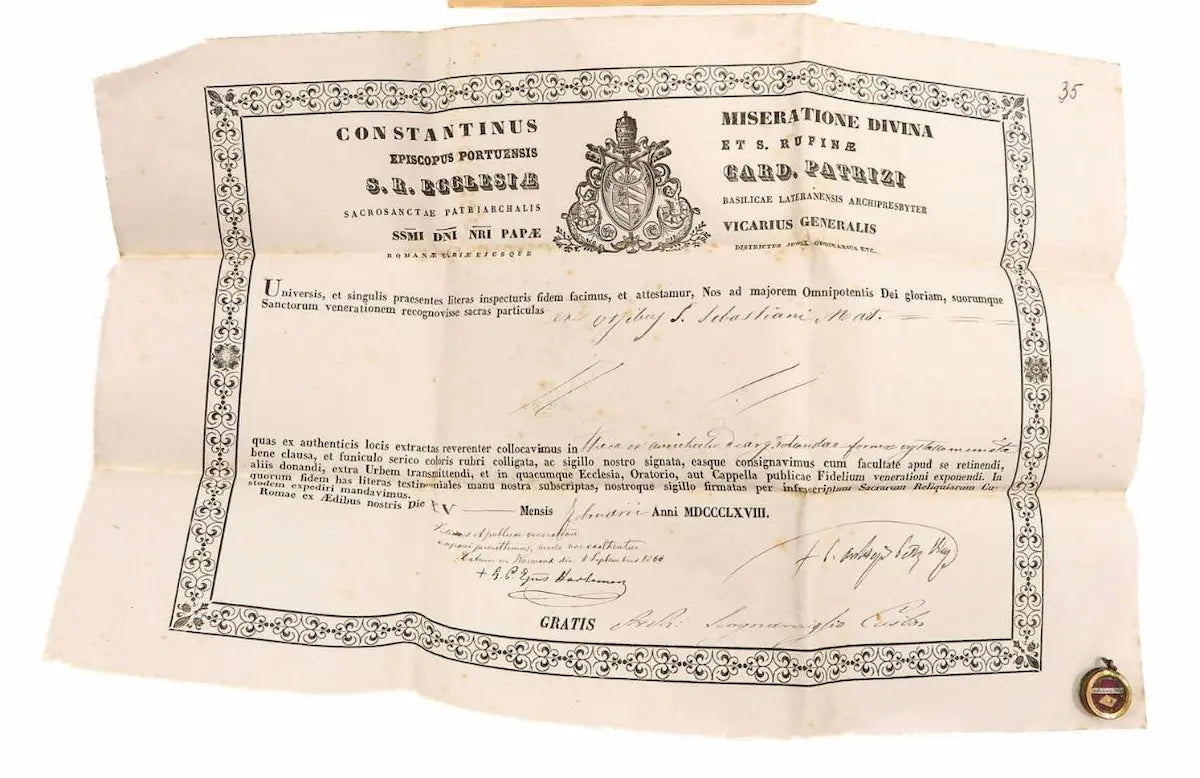 35
CONSTANTINUS MISERATIONE DIVINA
EPISCOPUS PORTUENSIS ET S. RUFINÆ
S. R. ECCLESIÆ CARD. PATRIZI
SACROSANCTAE PATRIARCHALIS BASILICAE LATERANENSIS ARCHIPRESBYTER
SSM̄I DN̄I N̄RI PAPÆ VICARIUS GENERALIS
ROMANÆ CURIÆ EJUSQUE DISTRICTUS JUDEX ORDINARIUS ETC.
Universis, et singulis praesentes literas inspecturis fidem facimus, et attestamur, Nos ad majorem Omnipotentis Dei gloriam, suorumque
Sanctorum venerationem recognovisse sacras particulas ex S. Sebastiani Mart.
quas ex authenticis locis extractas reverenter collocavimus in theca ex rotundae formae
bene clausa, et funiculo serico coloris rubri colligata, ac sigillo nostro signata, easque consignavimus cum facultate apud se retinendi,
aliis donandi, extra Urbem transmittendi, et in quacumque Ecclesia, Oratorio, aut Cappella publicae Fidelium venerationi exponendi. In
quorum fidem has literas testimoniales manu nostra subscriptas, nostroque sigillo firmatas per infrascriptum Sacrarum Reliquiarum Cu-
stodem expediri mandavimus.
Romae ex Ædibus nostris Die XV Mensis Februarii Anni MDCCCLXVIII.
GRATIS Scognamiglio Custos